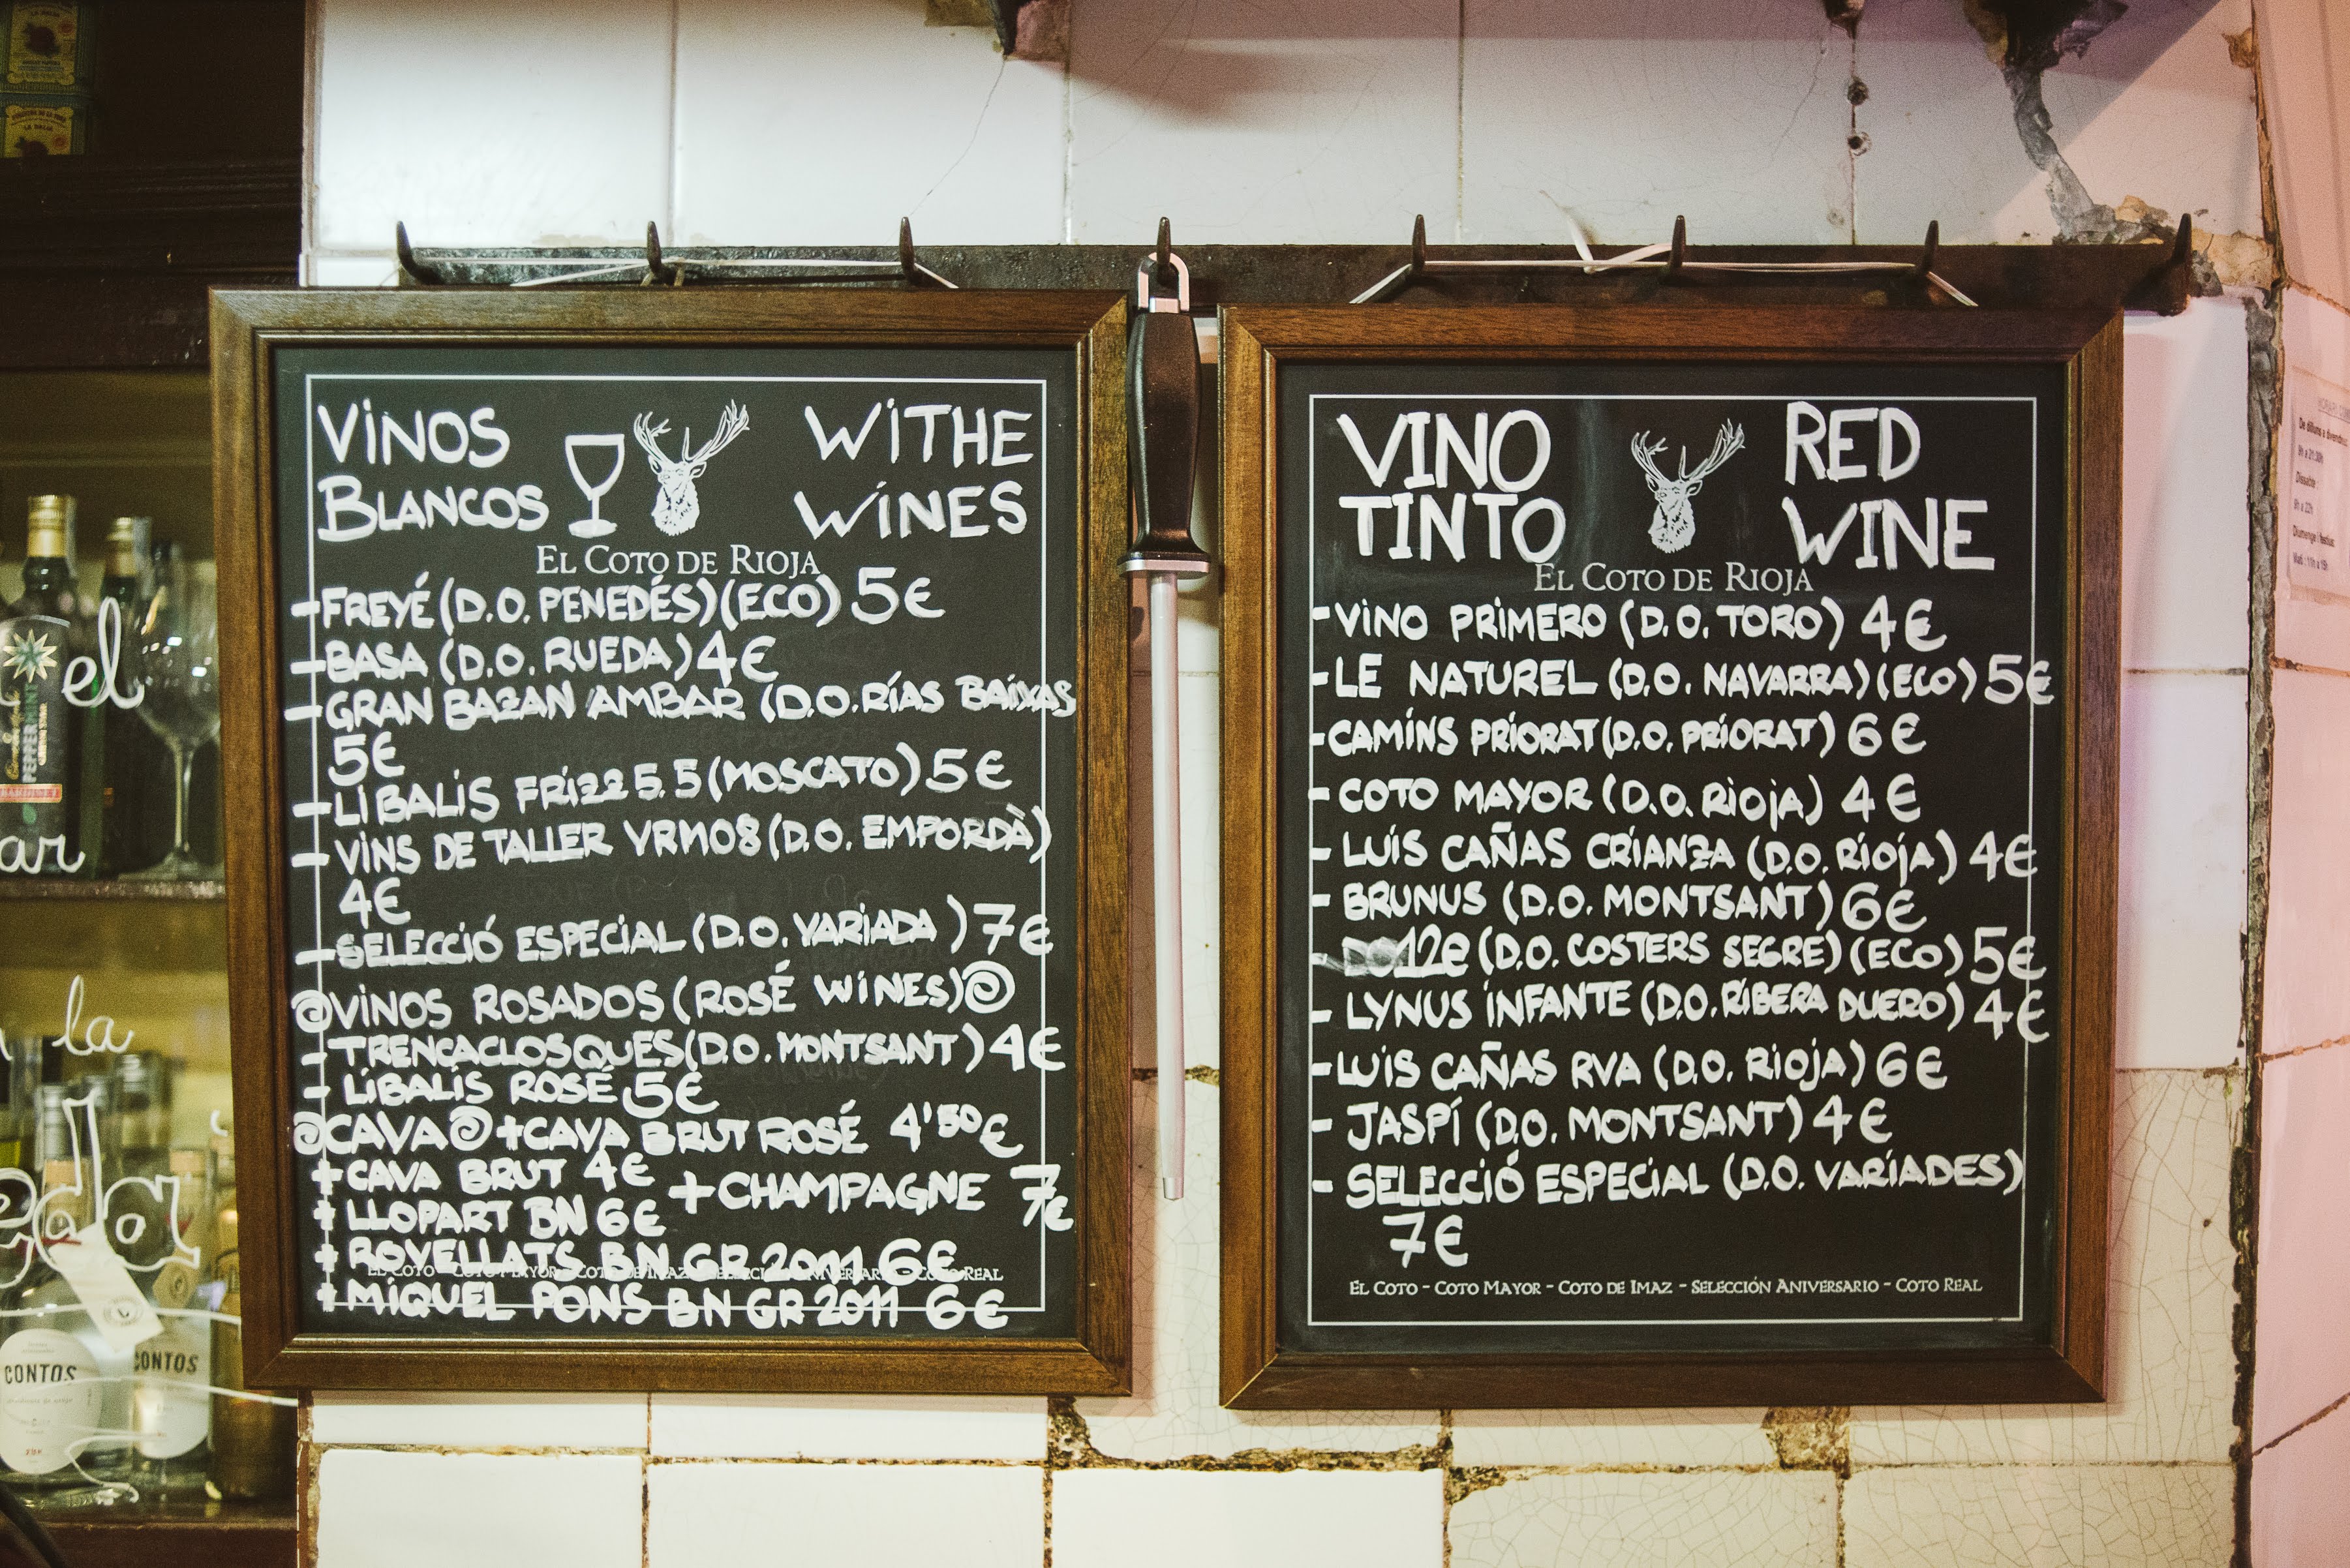 VINOS
BLANCOS
WITHE
WINES
EL COTO DE RIOJA
-FREYÉ (D.O. PENEDÉS) (ECO) 5€
-BASA (D.O. RUEDA) 4€
-GRAN BAZAN AMBAR (D.O. RÍAS BAIXAS
5€
-LIBALIS FRIZZ 5.5 (MOSCATO) 5€
-VINS DE TALLER VRM08 (D.O. EMPORDÀ)
4€
-SELECCIÓ ESPECIAL (D.O. VARIADA) 7€
VINOS ROSADOS (ROSÉ WINES)
-TRENCACLOSQUES (D.O. MONTSANT) 4€
-LIBALIS ROSÉ 5€
CAVA +CAVA BRUT ROSÉ 4'50€
+CAVA BRUT 4€
+CHAMPAGNE 7€
+LLOPART BN 6€
+ROVELLATS BN GR 2011 6€
+MIQUEL PONS BN GR 2011 6€
VINO
TINTO
RED
WINE
EL COTO DE RIOJA
-VINO PRIMERO (D.O. TORO) 4€
-LE NATUREL (D.O. NAVARRA) (ECO) 5€
-CAMINS PRIORAT (D.O. PRIORAT) 6€
-COTO MAYOR (D.O. RIOJA) 4€
-LUIS CAÑAS CRIANZA (D.O. RIOJA) 4€
-BRUNUS (D.O. MONTSANT) 6€
-12e (D.O. COSTERS SEGRE) (ECO) 5€
-LYNUS INFANTE (D.O. RIBERA DUERO) 4€
-LUIS CAÑAS RVA (D.O. RIOJA) 6€
-JASPÍ (D.O. MONTSANT) 4€
-SELECCIÓ ESPECIAL (D.O. VARIADES)
7€
EL COTO - COTO MAYOR - COTO DE IMAZ - SELECCIÓN ANIVERSARIO - COTO REAL
el
la
PEPPERMINT
CONTOS
CONTOS